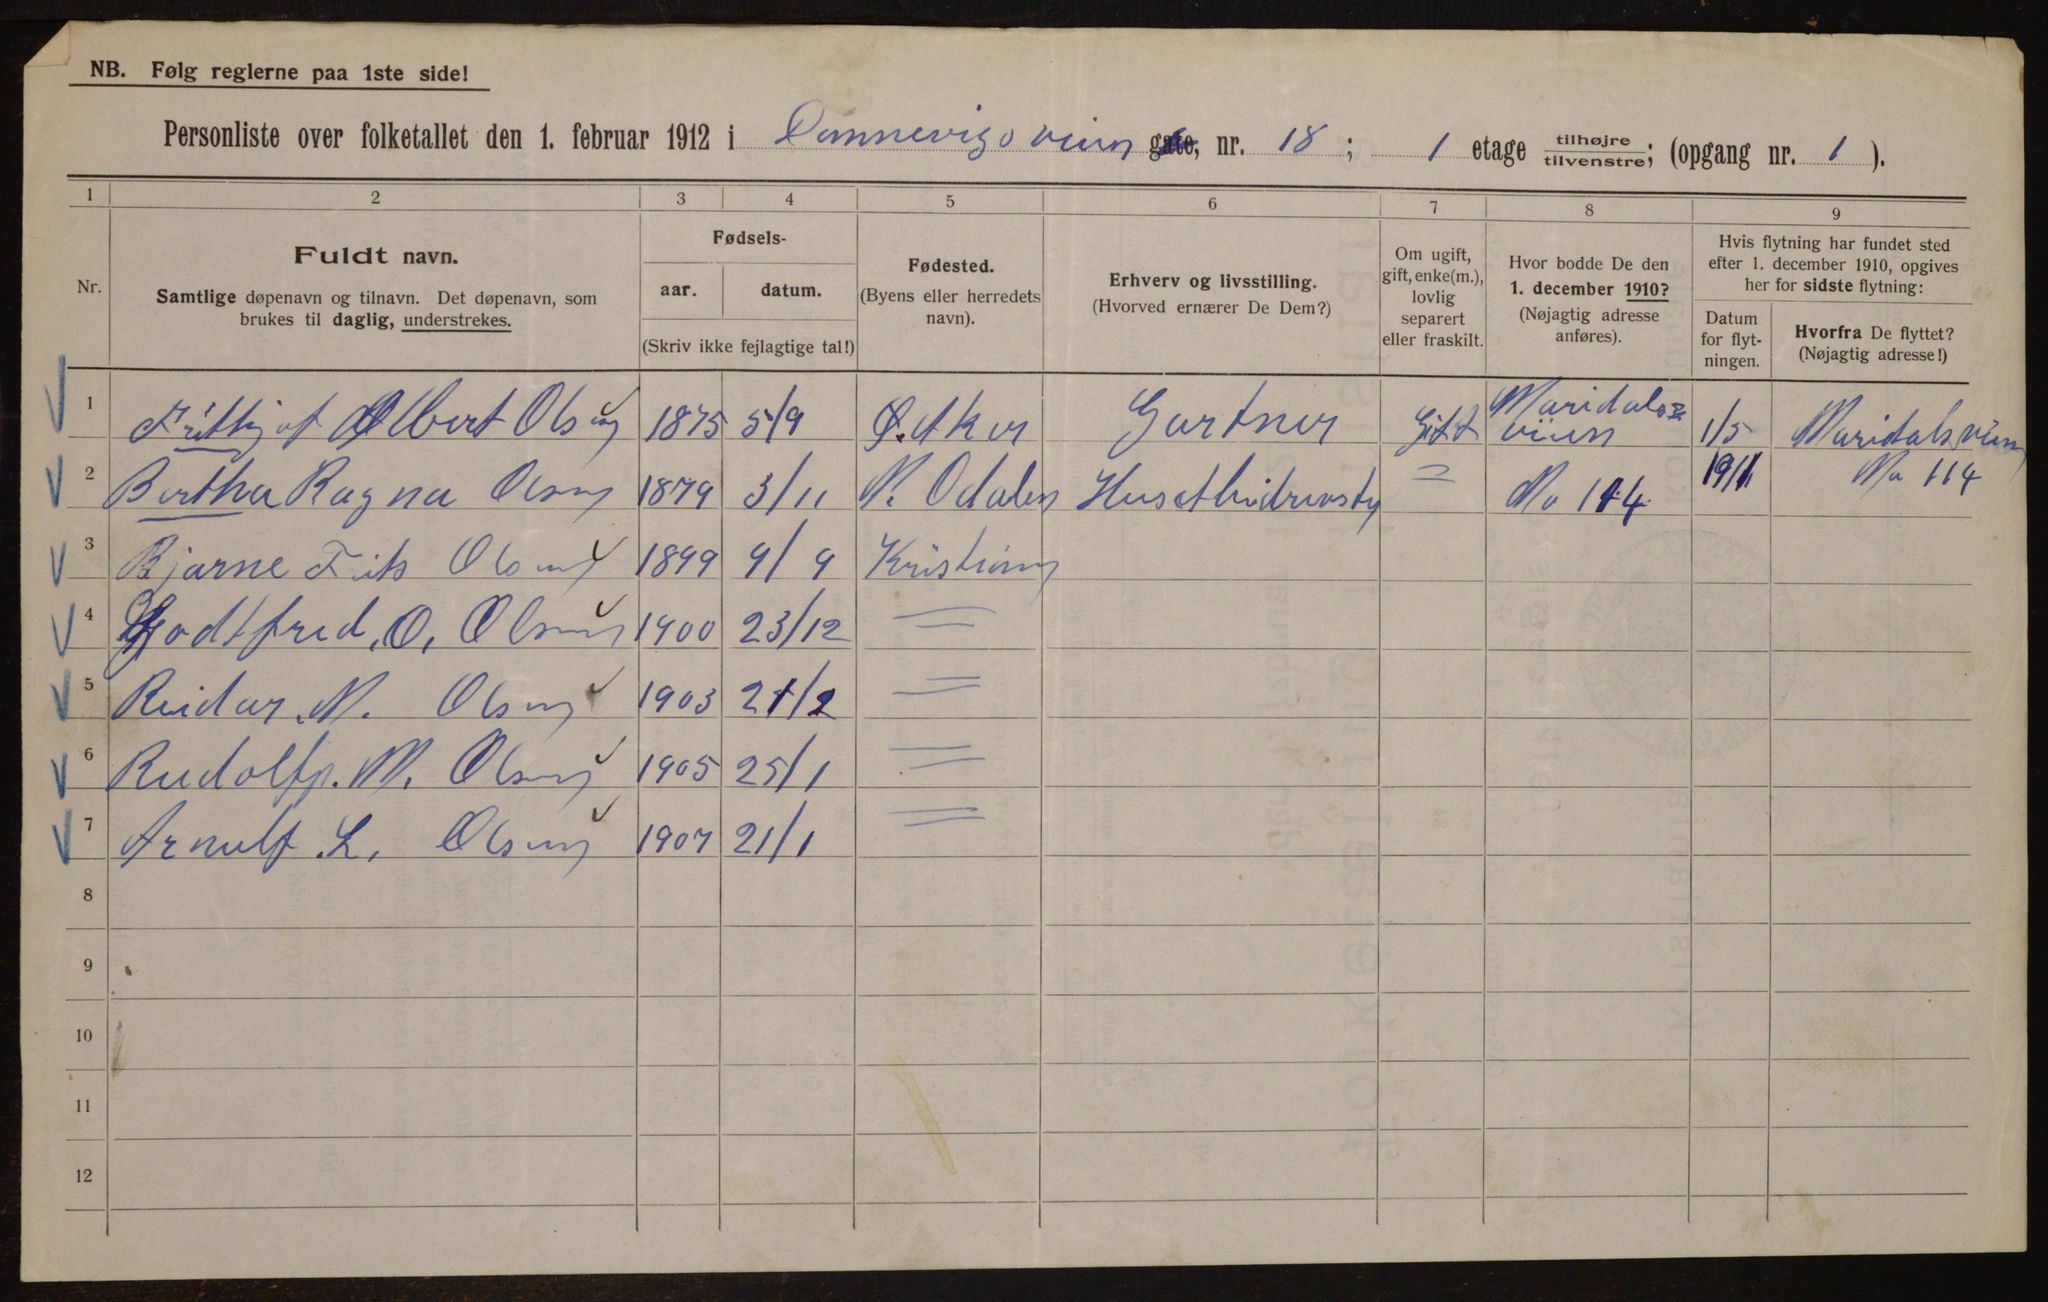 NB. Følg reglerne paa 1ste side!
Personliste over folketallet den 1. februar 1912 i Dannevigsveien gate, nr. 18; 1 etage tilhøjre/tilvenstre; (opgang nr. 1).
1 2 3 4 5 6 7 8 9
Nr.
Fuldt navn.
Samtlige døpenavn og tilnavn. Det døpenavn, som
brukes til daglig, understrekes.
Fødsels-
aar. datum.
(Skriv ikke fejlagtige tal!)
Fødested.
(Byens eller herredets
navn).
Erhverv og livsstilling.
(Hvorved ernærer De Dem?)
Om ugift,
gift, enke(m.),
lovlig
separert
eller fraskilt.
Hvor bodde De den
1. december 1910?
(Nøjagtig adresse
anføres).
Hvis flytning har fundet sted
efter 1. december 1910, opgives
her for sidste flytning:
Datum
for flyt-
ningen.
Hvorfra De flyttet?
(Nøjagtig adresse!)
1 Frithjof Albert Olsen 1875 5/9 Ø. Aker Gartner Gift Maridalsveien 1/5 Maridalsveien
2 Bertha Ragna Olsen 1879 3/11 N. Odalen = No 114 1911 No 114
3 Bjarne Frits Olsen 1899 9/9 Kristiania
4 Godtfred. O. Olsen 1900 23/12 =
5 Reidar. N. Olsen 1903 21/2 =
6 Rudolf. M. Olsen 1905 25/1 =
7 Arnulf. L. Olsen 1907 21/1 =
8
9
10
11
12